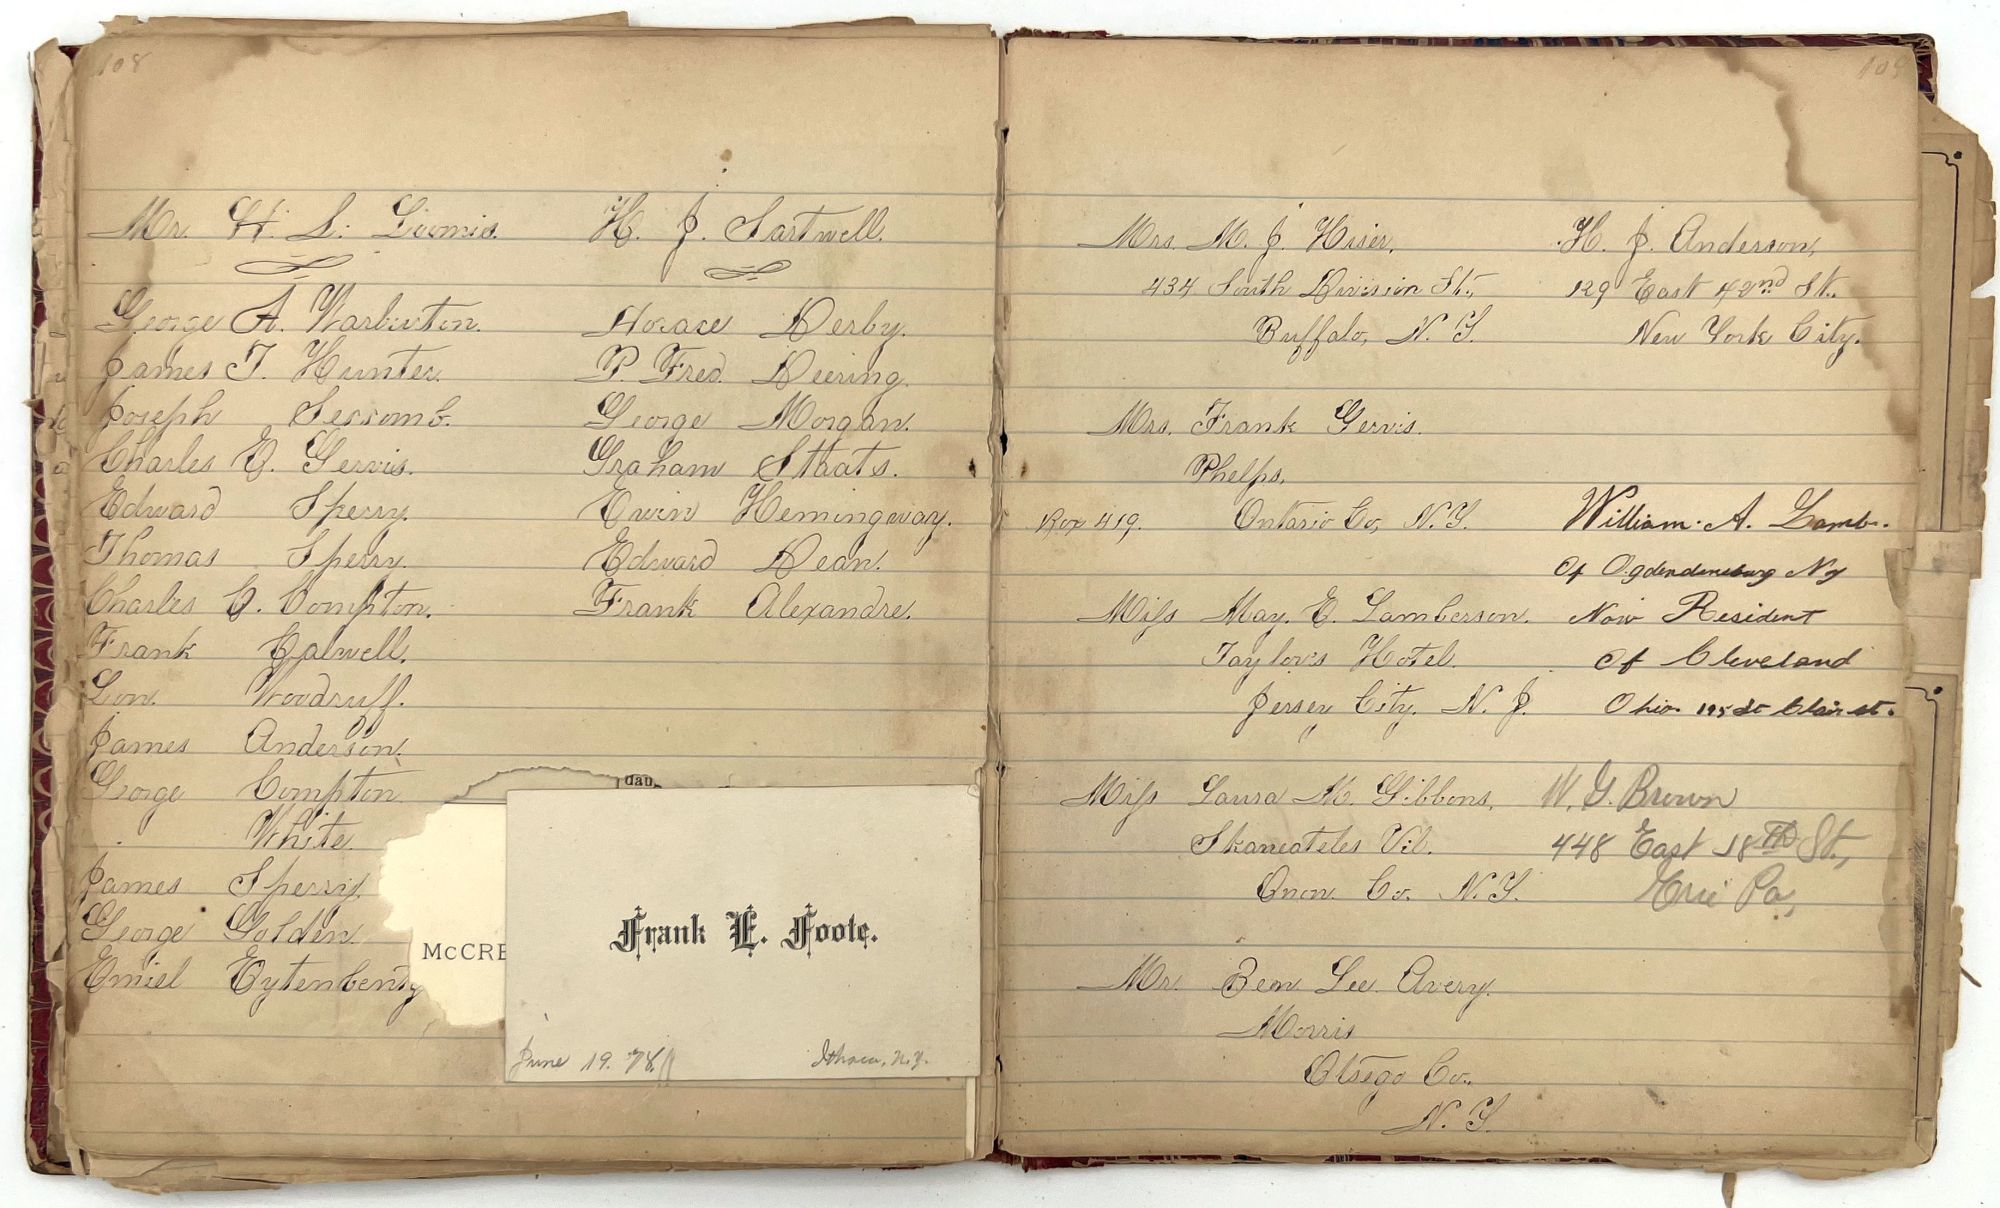 108
Mr. H. L. Loomis.
George A. Warburton.
James T. Hunter.
Joseph Seccomb.
Charles E. Gervis.
Edward Sperry.
Thomas Sperry.
Charles C. Compton.
Frank Calwell.
Lon. Woodruff.
James Anderson.
George Compton
White.
James Sperry.
George Golden.
Emiel
H. J. Sartwell.
Horace Derby.
P. Fred. Deering.
George Morgan.
Graham Staats.
Erwin Hemingway.
Edward Dean.
Frank Alexandre.
dau
McCRE
Frank E. Foote.
June 19. 78.
Ithaca, N.Y.
109
Mrs. M. J. Hiser,
434 South Division St.,
Buffalo, N. Y.
Mrs. Frank Gervis.
Phelps,
Box 419. Ontario Co, N.Y.
Miss May. E. Lamberson.
Taylors Hotel.
Jersey City, N. J.
Miss Laura M. Gibbons,
Skaneateles Vil.
Onon. Co. N.Y.
Mr. Ben Lee Avery.
Morris
Otsego Co.,
N. Y.
H. J. Anderson,
129 East 42nd St.,
New York City.
William. A. Lamb.
Of Ny
Now Resident
Of Cleveland
Ohio. 195 St Clair st.
W. G. Brown
448 East 18th St.,
Erie Pa,